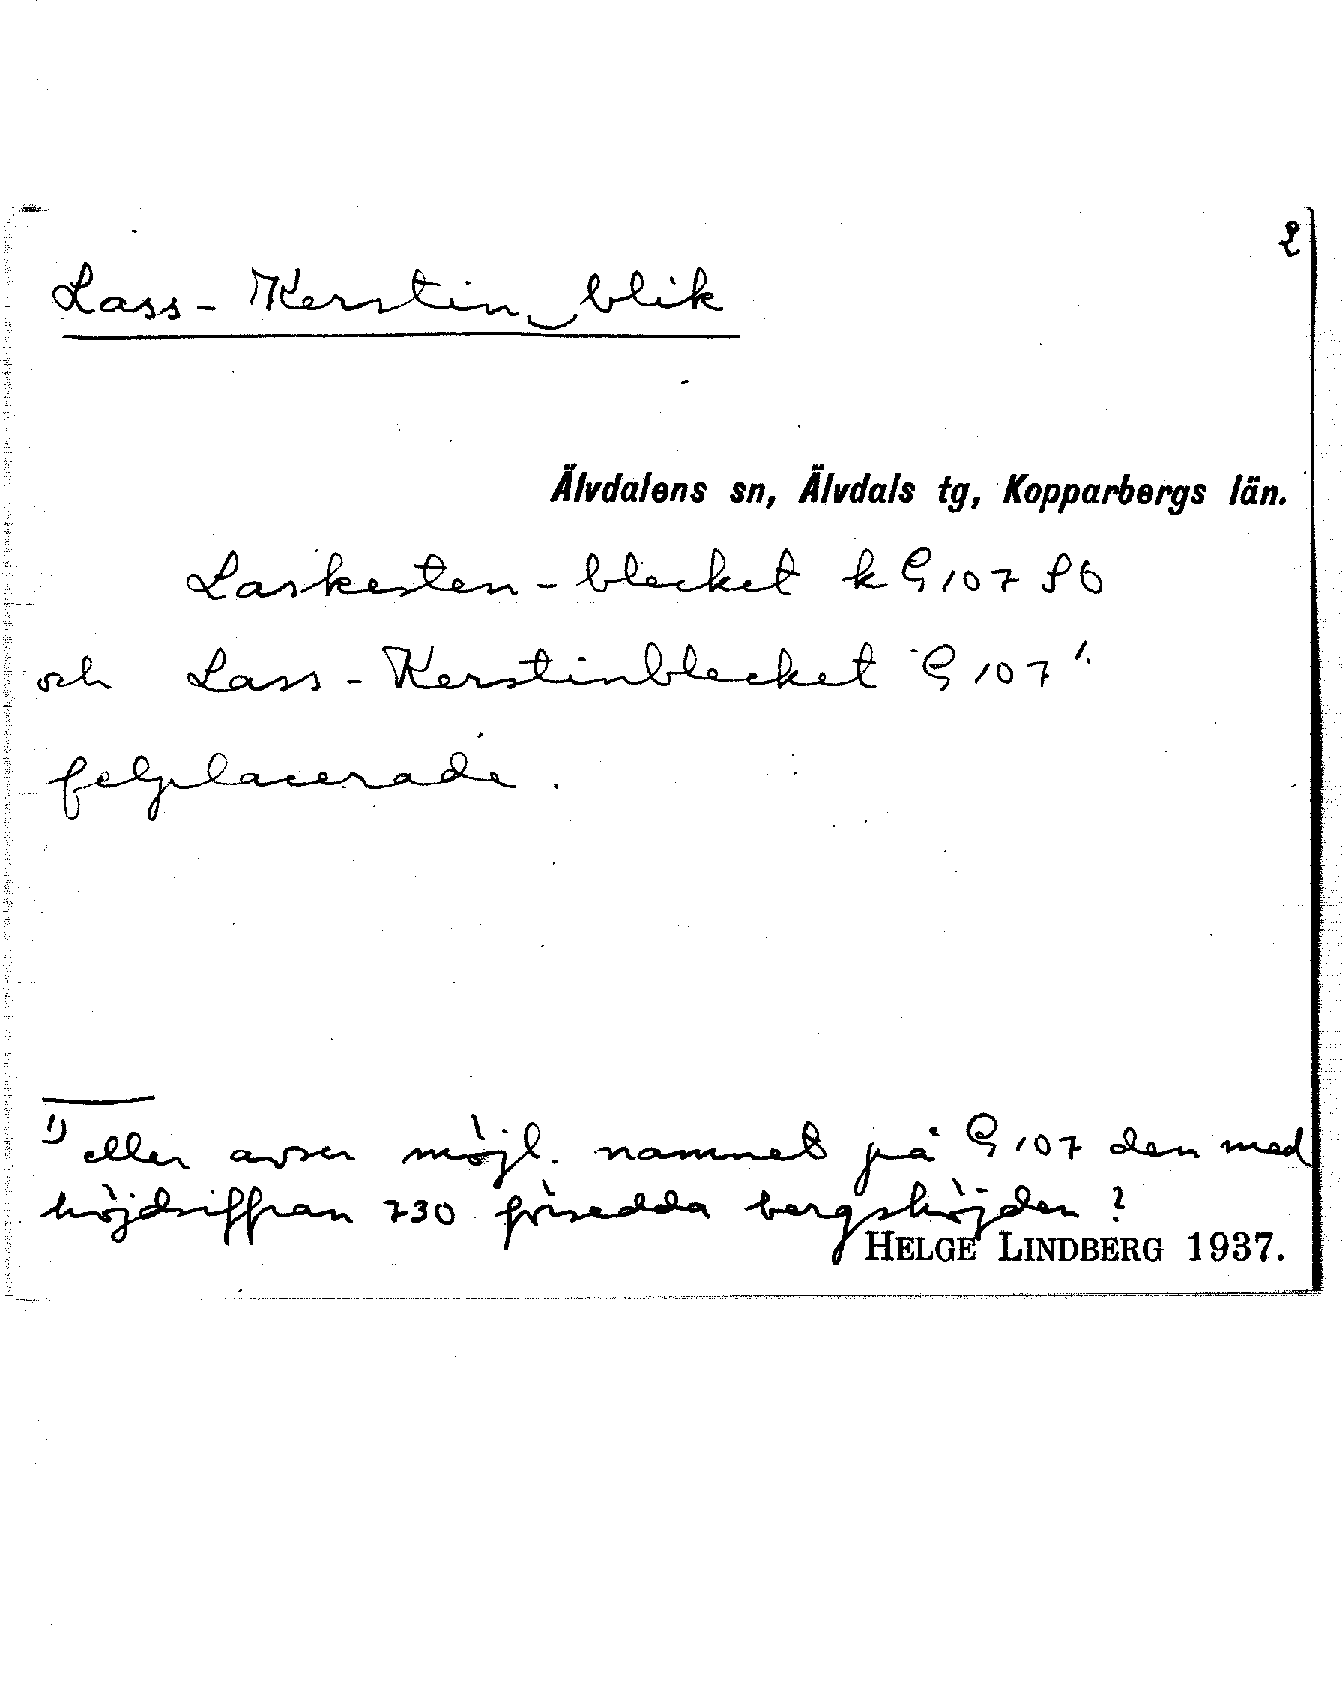 2
Lass-Kerstin‿blik
Älvdalens sn, Älvdals tg, Kopparbergs län.
Laskesten-blecket k G 107 SO
och Lass-Kerstinblecket G 107 ¹⁾
felplacerade.
¹⁾ eller avser möjl. namnet på G 107 den med
höjdsiffran 730 försedda bergshöjden?
HELGE LINDBERG 1937.